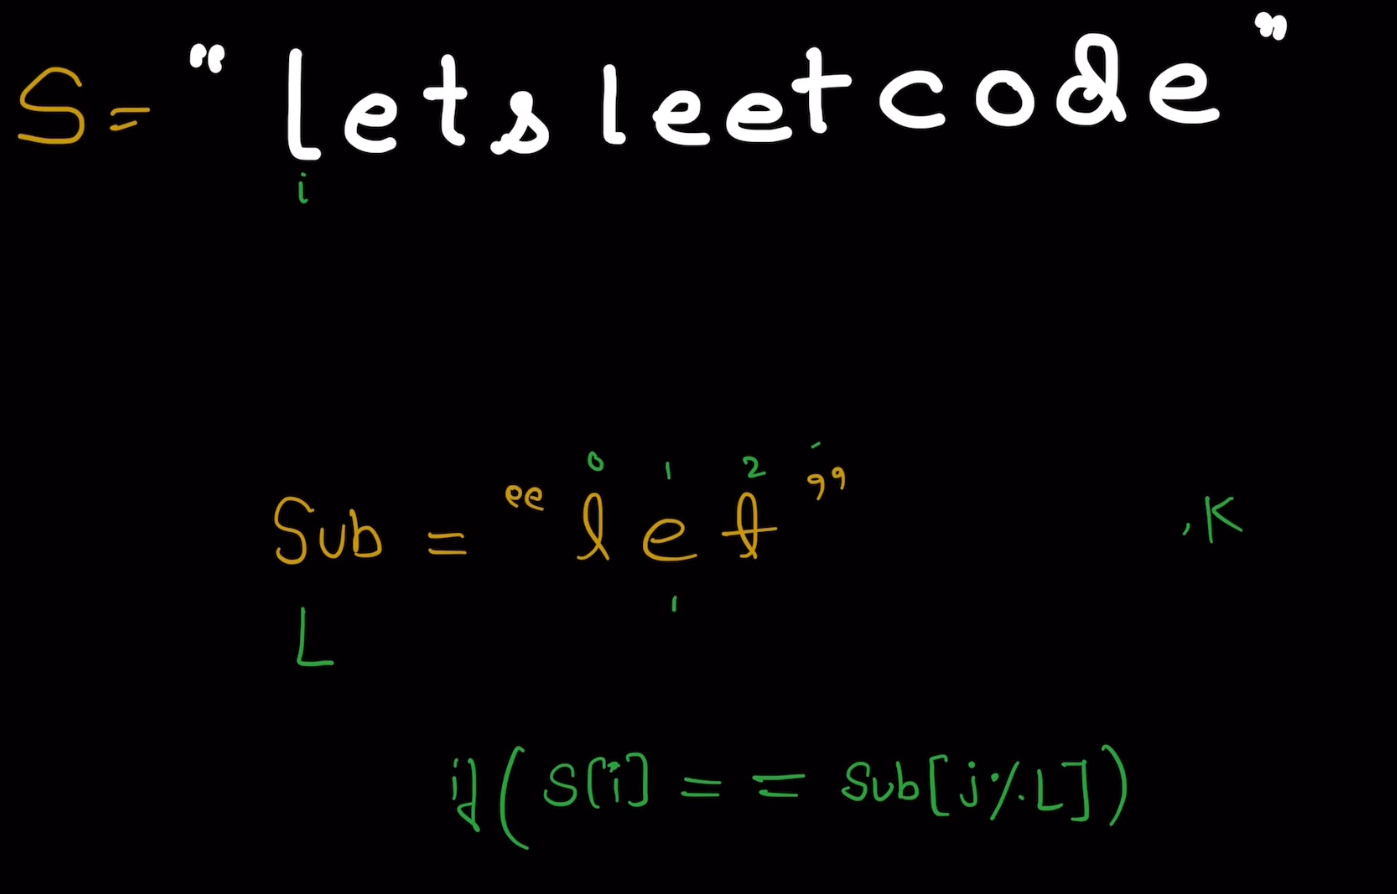 S= "letsleetcode"
i
0 1 2
Sub = "let" , K
1
L
if(S[i] == Sub[j%L])